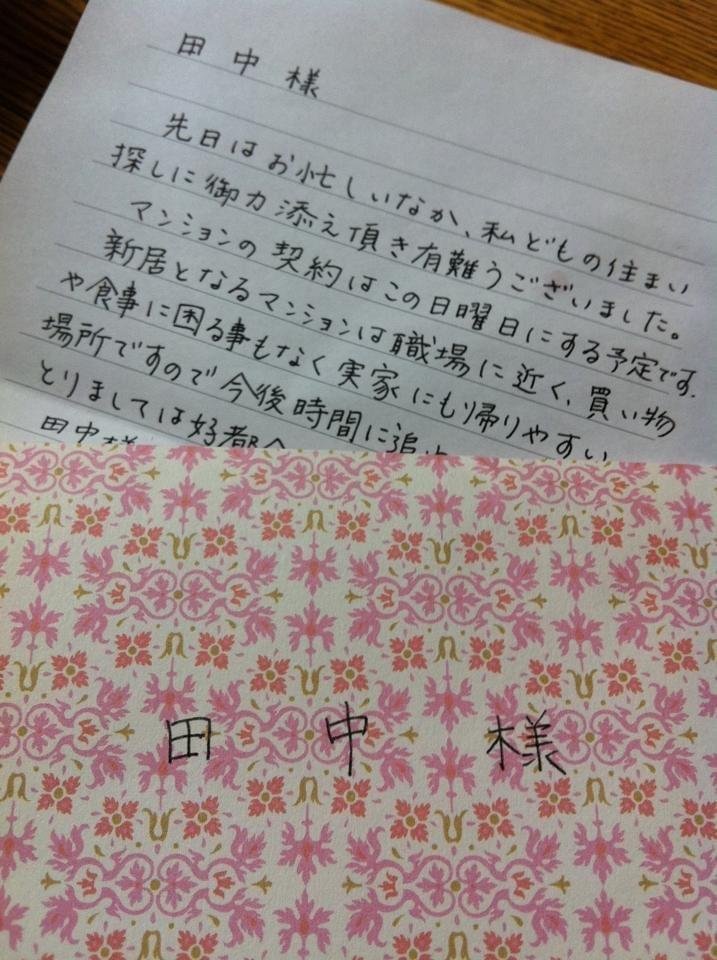 田中様
先日はお忙しいなか、私どもの住まい
探しに御力添え頂き有難うございました。
マンションの契約はこの日曜日にする予定です.
新居となるマンションは職場に近く、買い物
や食事に困る事もなく実家にもり帰りやすい
場所ですので今後時間に追
とりましては好都
田中様
田中様